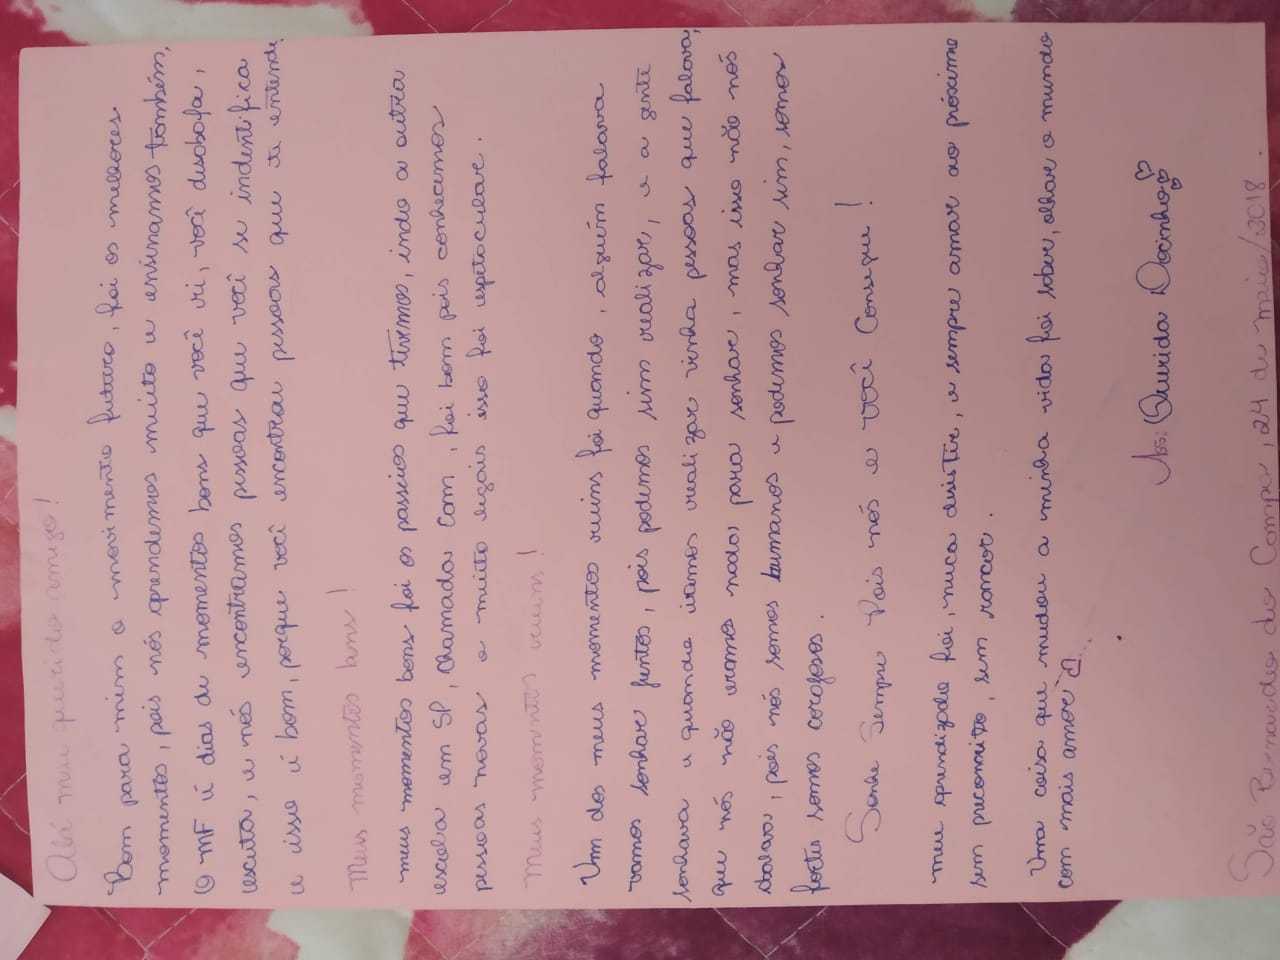 Olá meu querido amigo!
Bom para mim o movimento futuro, foi os melhores
momentos, pois nós aprendemos muito e ensinamos também,
O MF é dias de momentos bons que você ri, você desabafa,
escuta, e nós encontramos pessoas que você se indentifica
e isso é bom, porque você encontrar pessoas que te entende.
Meus momentos bons!
meus momentos bons foi os passeios que tivemos, indo a outra
escola em SP, chamada Com, foi bom pois conhecemos
pessoas novas e muito legais isso foi espetacular.
Meus momentos ruins!
Um dos meus momentos ruins foi quando, alguém falava
vamos sonhar juntos, pois podemos sim realizar, e a gente
sonhava e quando iamos realizar vinha pessoas que falava,
que nós não eramos nada para sonhar, mas isso não nós
abalava, pois nós somos humanos e podemos sonhar sim, somos
fortes somos corajosos.
Sonhe Sempre Pois nós e você Consegue!
meu aprendizado foi, nuca desistir, e sempre amar ao próximo
sem preconceito, sem rancor.
Uma coisa que mudou a minha vida foi saber, olhar o mundo
com mais amor
Ass: Docinho
São Bernardo do Campo, 24 de maio/2018.